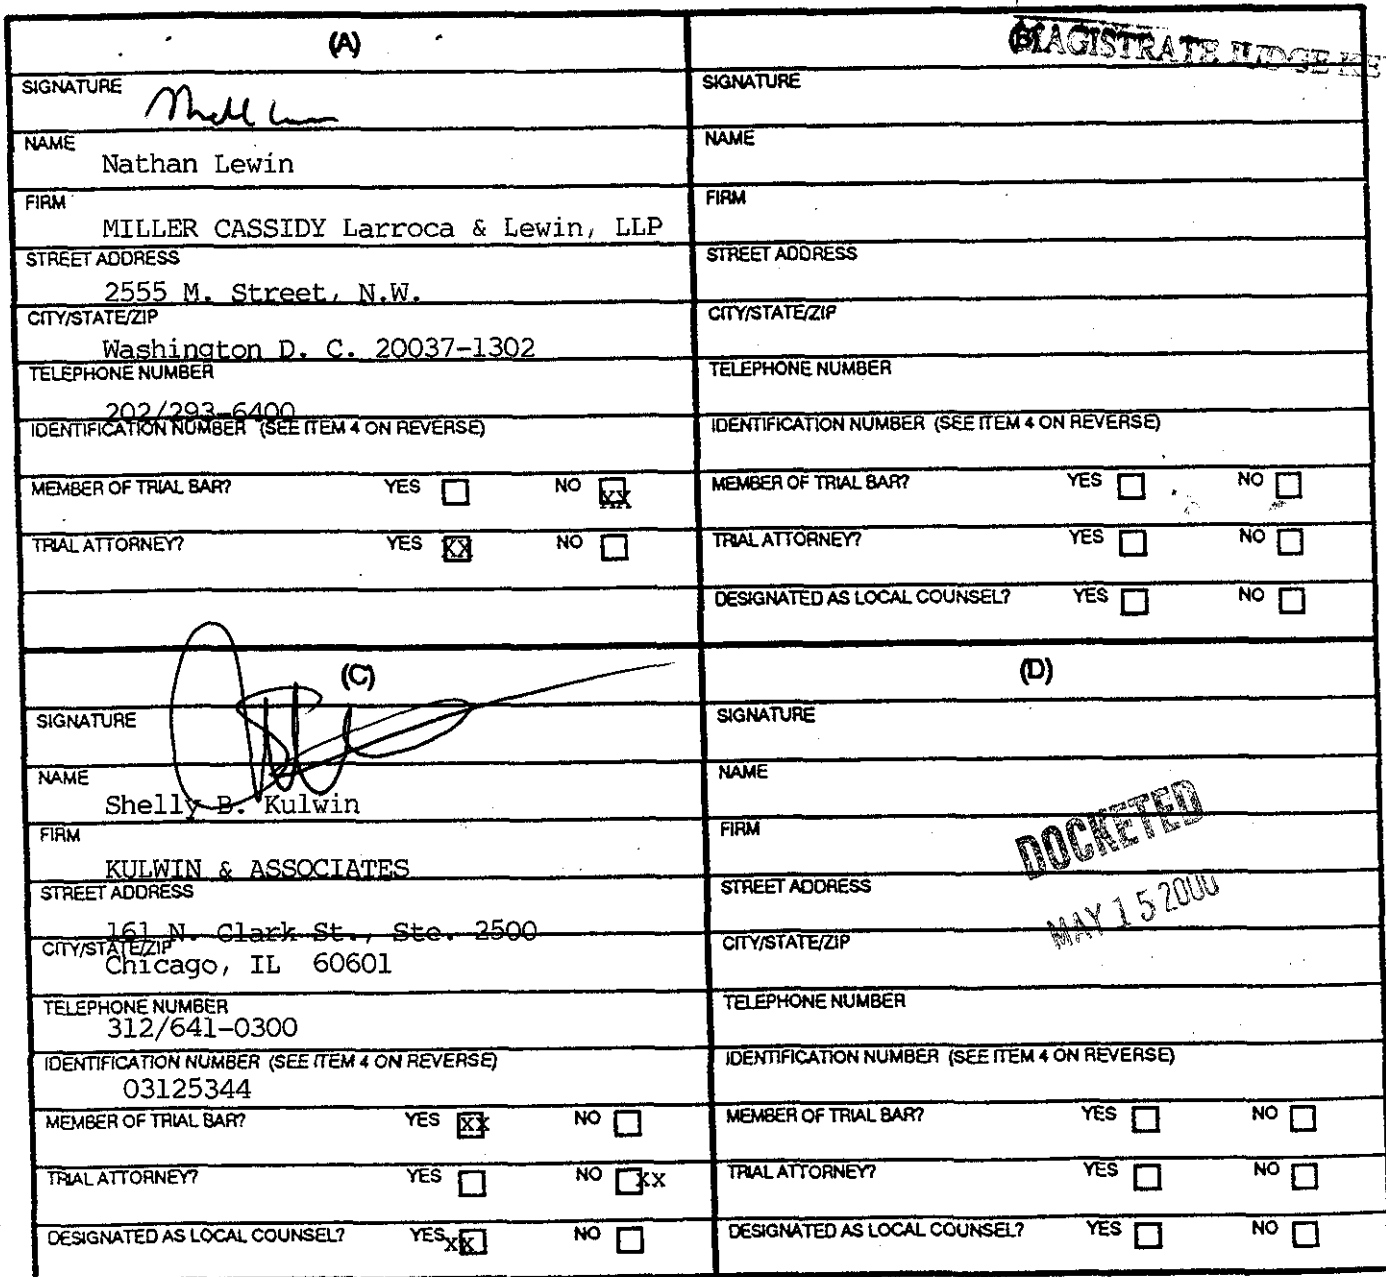 (A)
SIGNATURE
NAME
Nathan Lewin
FIRM
MILLER CASSIDY Larroca & Lewin, LLP
STREET ADDRESS
2555 M. Street, N.W.
CITY/STATE/ZIP
Washington D. C. 20037-1302
TELEPHONE NUMBER
202/293-6400
IDENTIFICATION NUMBER (SEE ITEM 4 ON REVERSE)
MEMBER OF TRIAL BAR? YES NO XX
TRIAL ATTORNEY? YES XX NO
(B) MAGISTRATE JUDGE
SIGNATURE
NAME
FIRM
STREET ADDRESS
CITY/STATE/ZIP
TELEPHONE NUMBER
IDENTIFICATION NUMBER (SEE ITEM 4 ON REVERSE)
MEMBER OF TRIAL BAR? YES NO
TRIAL ATTORNEY? YES NO
DESIGNATED AS LOCAL COUNSEL? YES NO
(C)
SIGNATURE
NAME
Shelly B. Kulwin
FIRM
KULWIN & ASSOCIATES
STREET ADDRESS
161 N. Clark St., Ste. 2500
CITY/STATE/ZIP
Chicago, IL 60601
TELEPHONE NUMBER
312/641-0300
IDENTIFICATION NUMBER (SEE ITEM 4 ON REVERSE)
03125344
MEMBER OF TRIAL BAR? YES XX NO
TRIAL ATTORNEY? YES NO xx
DESIGNATED AS LOCAL COUNSEL? YES xx NO
(D)
SIGNATURE
NAME
FIRM
DOCKETED
STREET ADDRESS
MAY 15 2000
CITY/STATE/ZIP
TELEPHONE NUMBER
IDENTIFICATION NUMBER (SEE ITEM 4 ON REVERSE)
MEMBER OF TRIAL BAR? YES NO
TRIAL ATTORNEY? YES NO
DESIGNATED AS LOCAL COUNSEL? YES NO